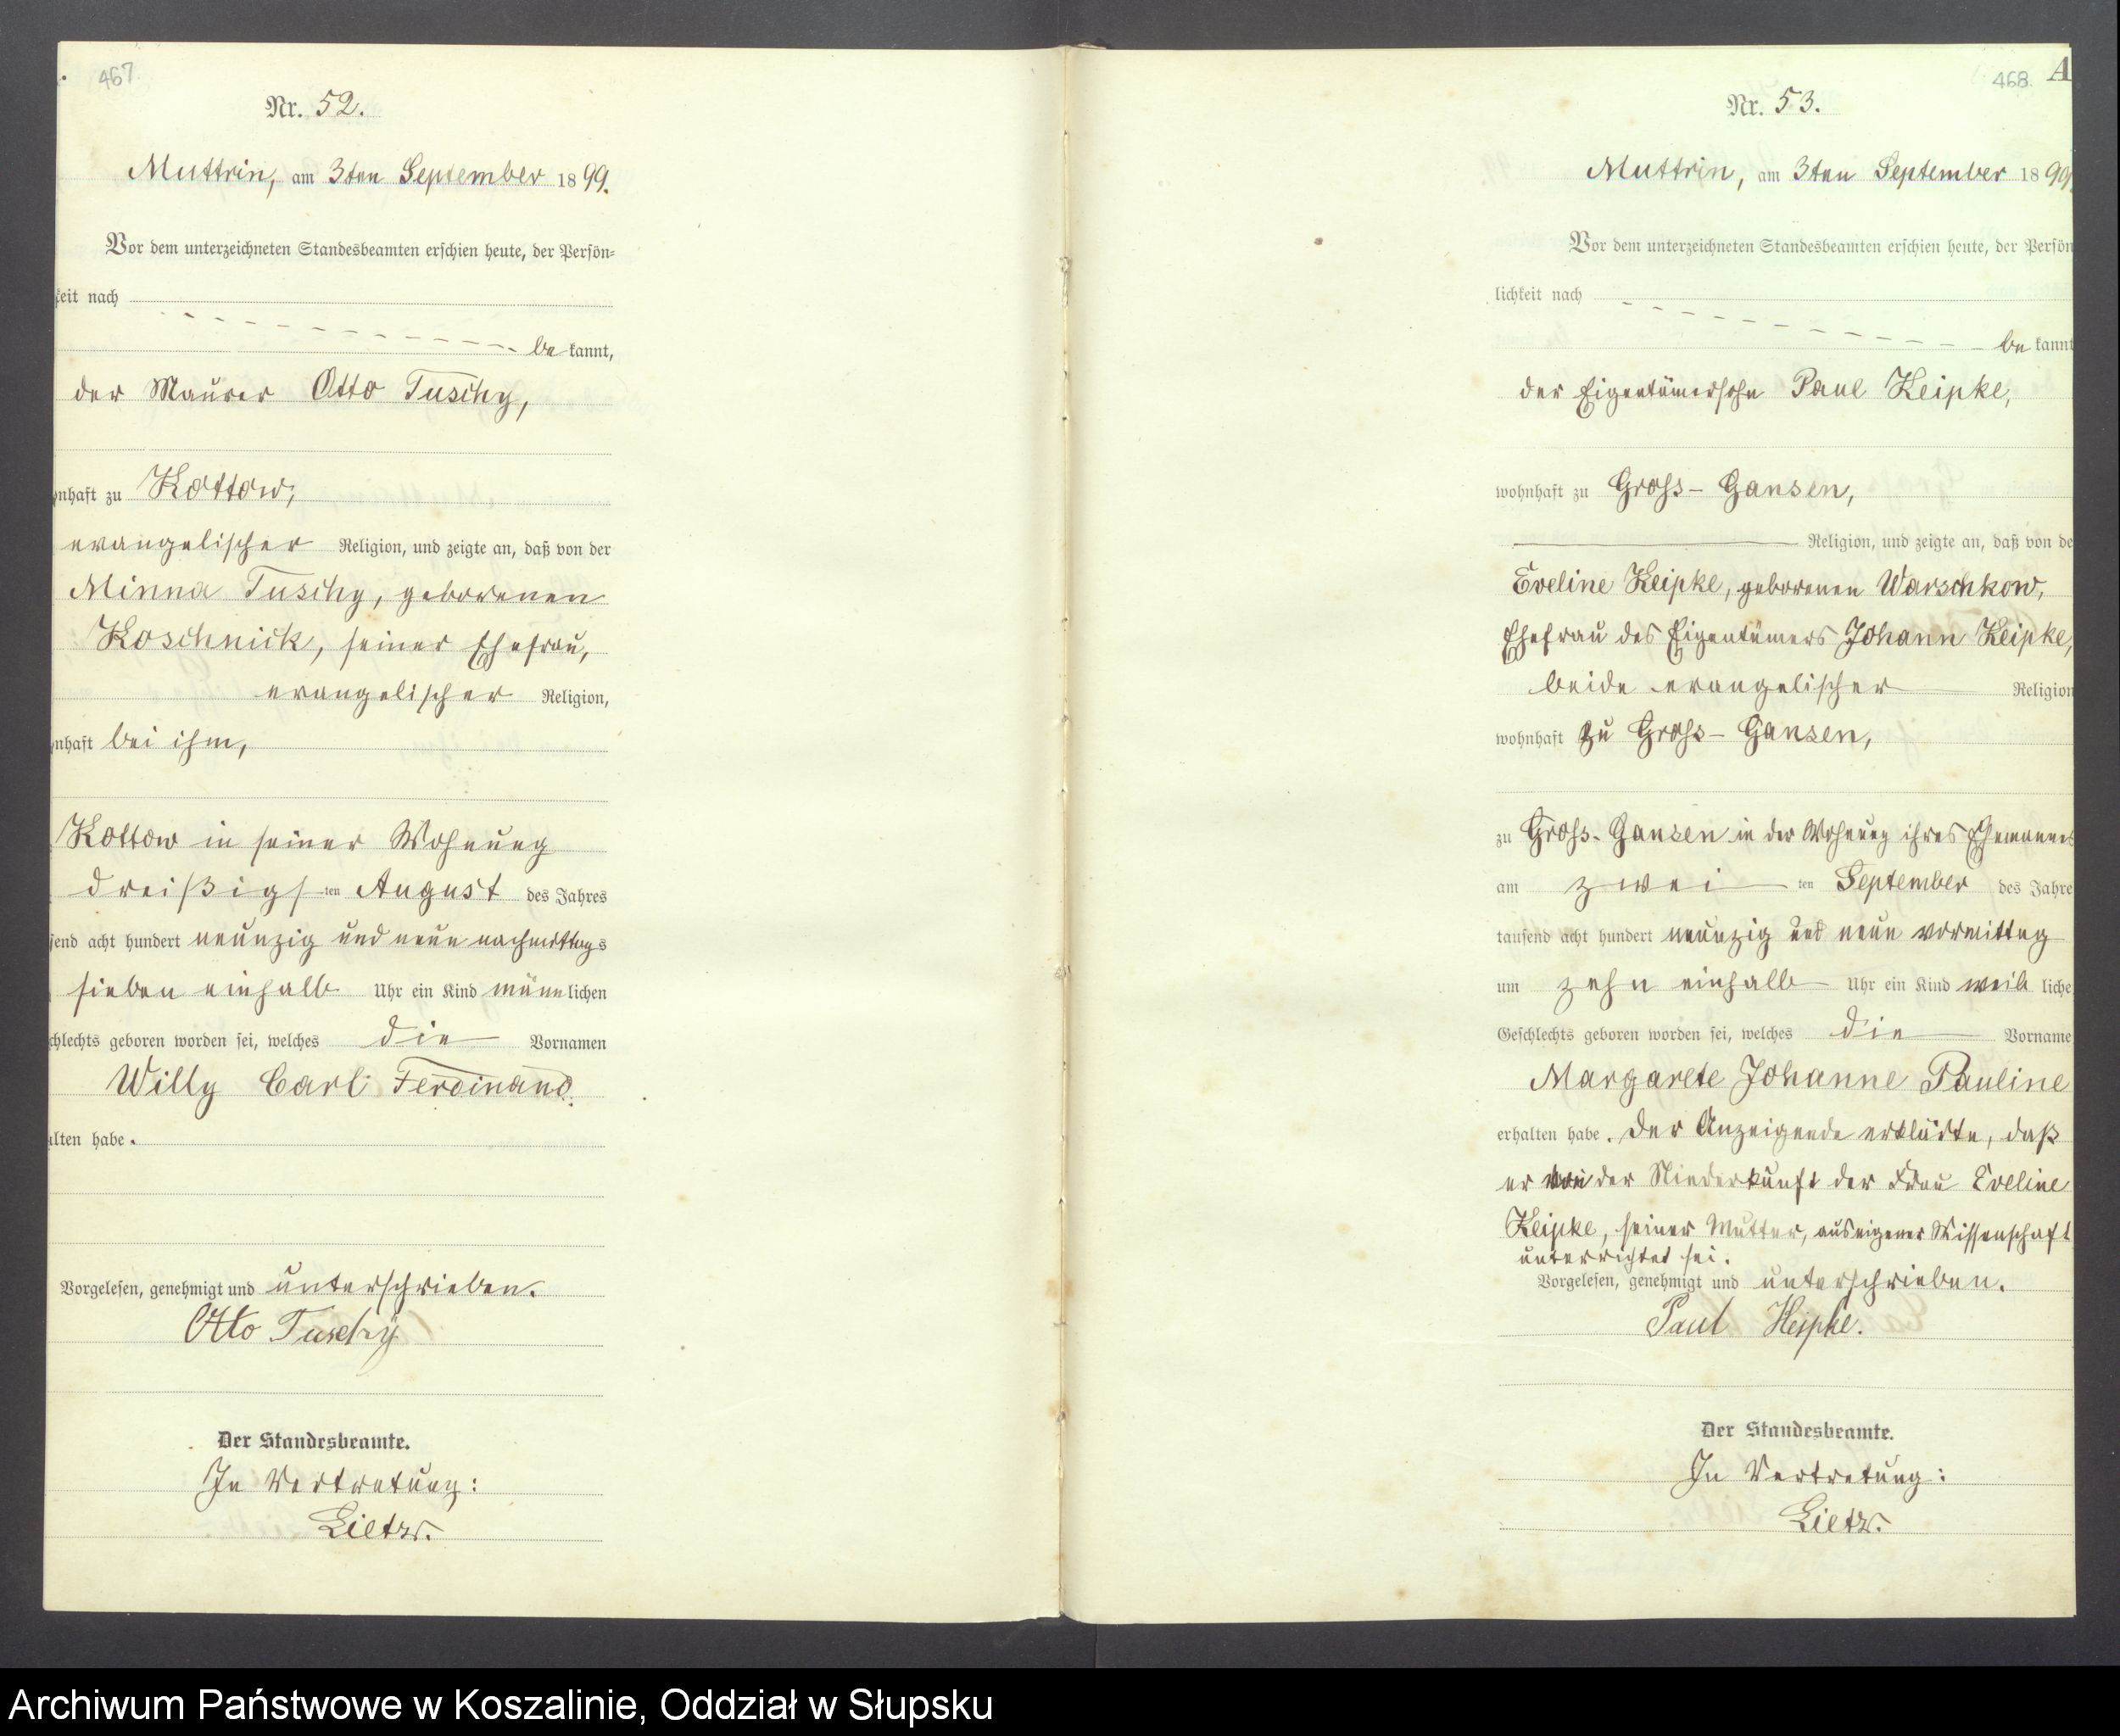 467
Nr. 52.
Muttrin, am 3ten September 1899.
Vor dem unterzeichneten Standesbeamten erschien heute, der Persön-
keit nach
be kannt,
der Maurer Otto Tuschy,
nhaft zu Kottow,
evangelischer Religion, und zeigte an, daß von der
Minna Tuschy, geborenen
Koschnick, seiner Ehefrau,
evangelischer Religion,
nhaft bei ihm,
Kottow in seiner Wohnung
dreißigsten August des Jahres
send acht hundert neunzig und neun nachmittags
sieben einhalb Uhr ein Kind männlichen
chlechts geboren worden sei, welches die Vornamen
Willy Carl Ferdinand
lten habe.
Vorgelesen, genehmigt und unterschrieben.
Otto Tuschy
Der Standesbeamte.
In Vertretung:
Lietz.
468. A
Nr. 53.
Muttrin, am 3ten September 1899
Vor dem unterzeichneten Standesbeamten erschien heute, der Persön
lichkeit nach
be kannt
der Eigentümersohn Paul Keipke,
wohnhaft zu Gross-Gansen,
Religion, und zeigte an, daß von de
Eveline Keipke, geborenen Warschkow,
Ehefrau des Eigentümers Johann Keipke,
beide evangelischer Religion
wohnhaft zu Gross-Gansen,
zu Gross-Gansen in der Wohnung ihres Ehemannes
am zweiten September des Jahre
tausend acht hundert neunzig und neun vormittag
um zehn einhalb Uhr ein Kind weibliche
Geschlechts geboren worden sei, welches die Vorname
Margarete Johanne Pauline
erhalten habe. Der Anzeigende erklärte, daß
er von der Niederkunft der Frau Eveline
Keipke, seiner Mutter, aus eigener Wissenschaft
unterrichtet sei.
Vorgelesen, genehmigt und unterschrieben.
Paul Keipke.
Der Standesbeamte.
In Vertretung:
Lietz.
Archiwum Państwowe w Koszalinie, Oddział w Słupsku